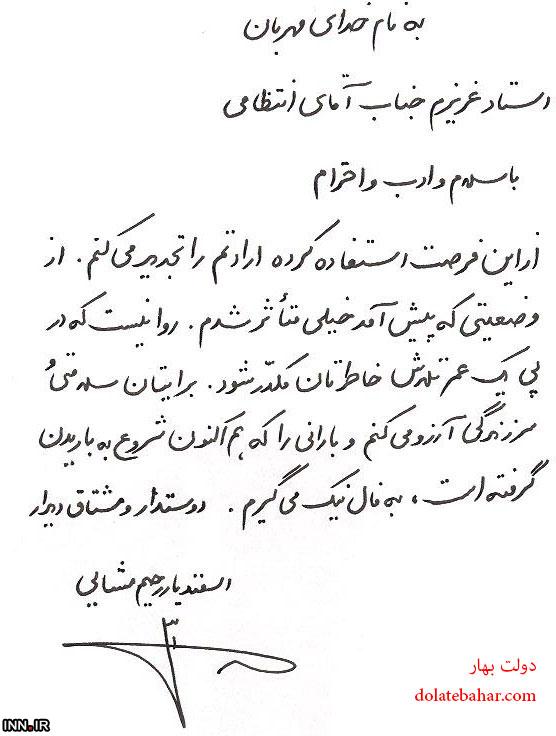 به نام خدای مهربان
استاد عزیزم جناب آقای انتظامی
با سلام و ادب و احترام
از این فرصت استفاده کرده ارادتم را تجدید می کنم . از
وضعیتی که پیش آمد خیلی متأثر شدم . روا نیست که در
پی یک عمر تلاش خاطرتان مکدّر شود . برایتان سلامتی و
سرزندگی آرزو می کنم و بارانی را که هم اکنون شروع به باریدن
گرفته است ، به فال نیک می گیرم . دوستدار و مشتاق دیدار
اسفندیار رحیم مشایی
دولت بهار
dolatebahar.com
INN.IR